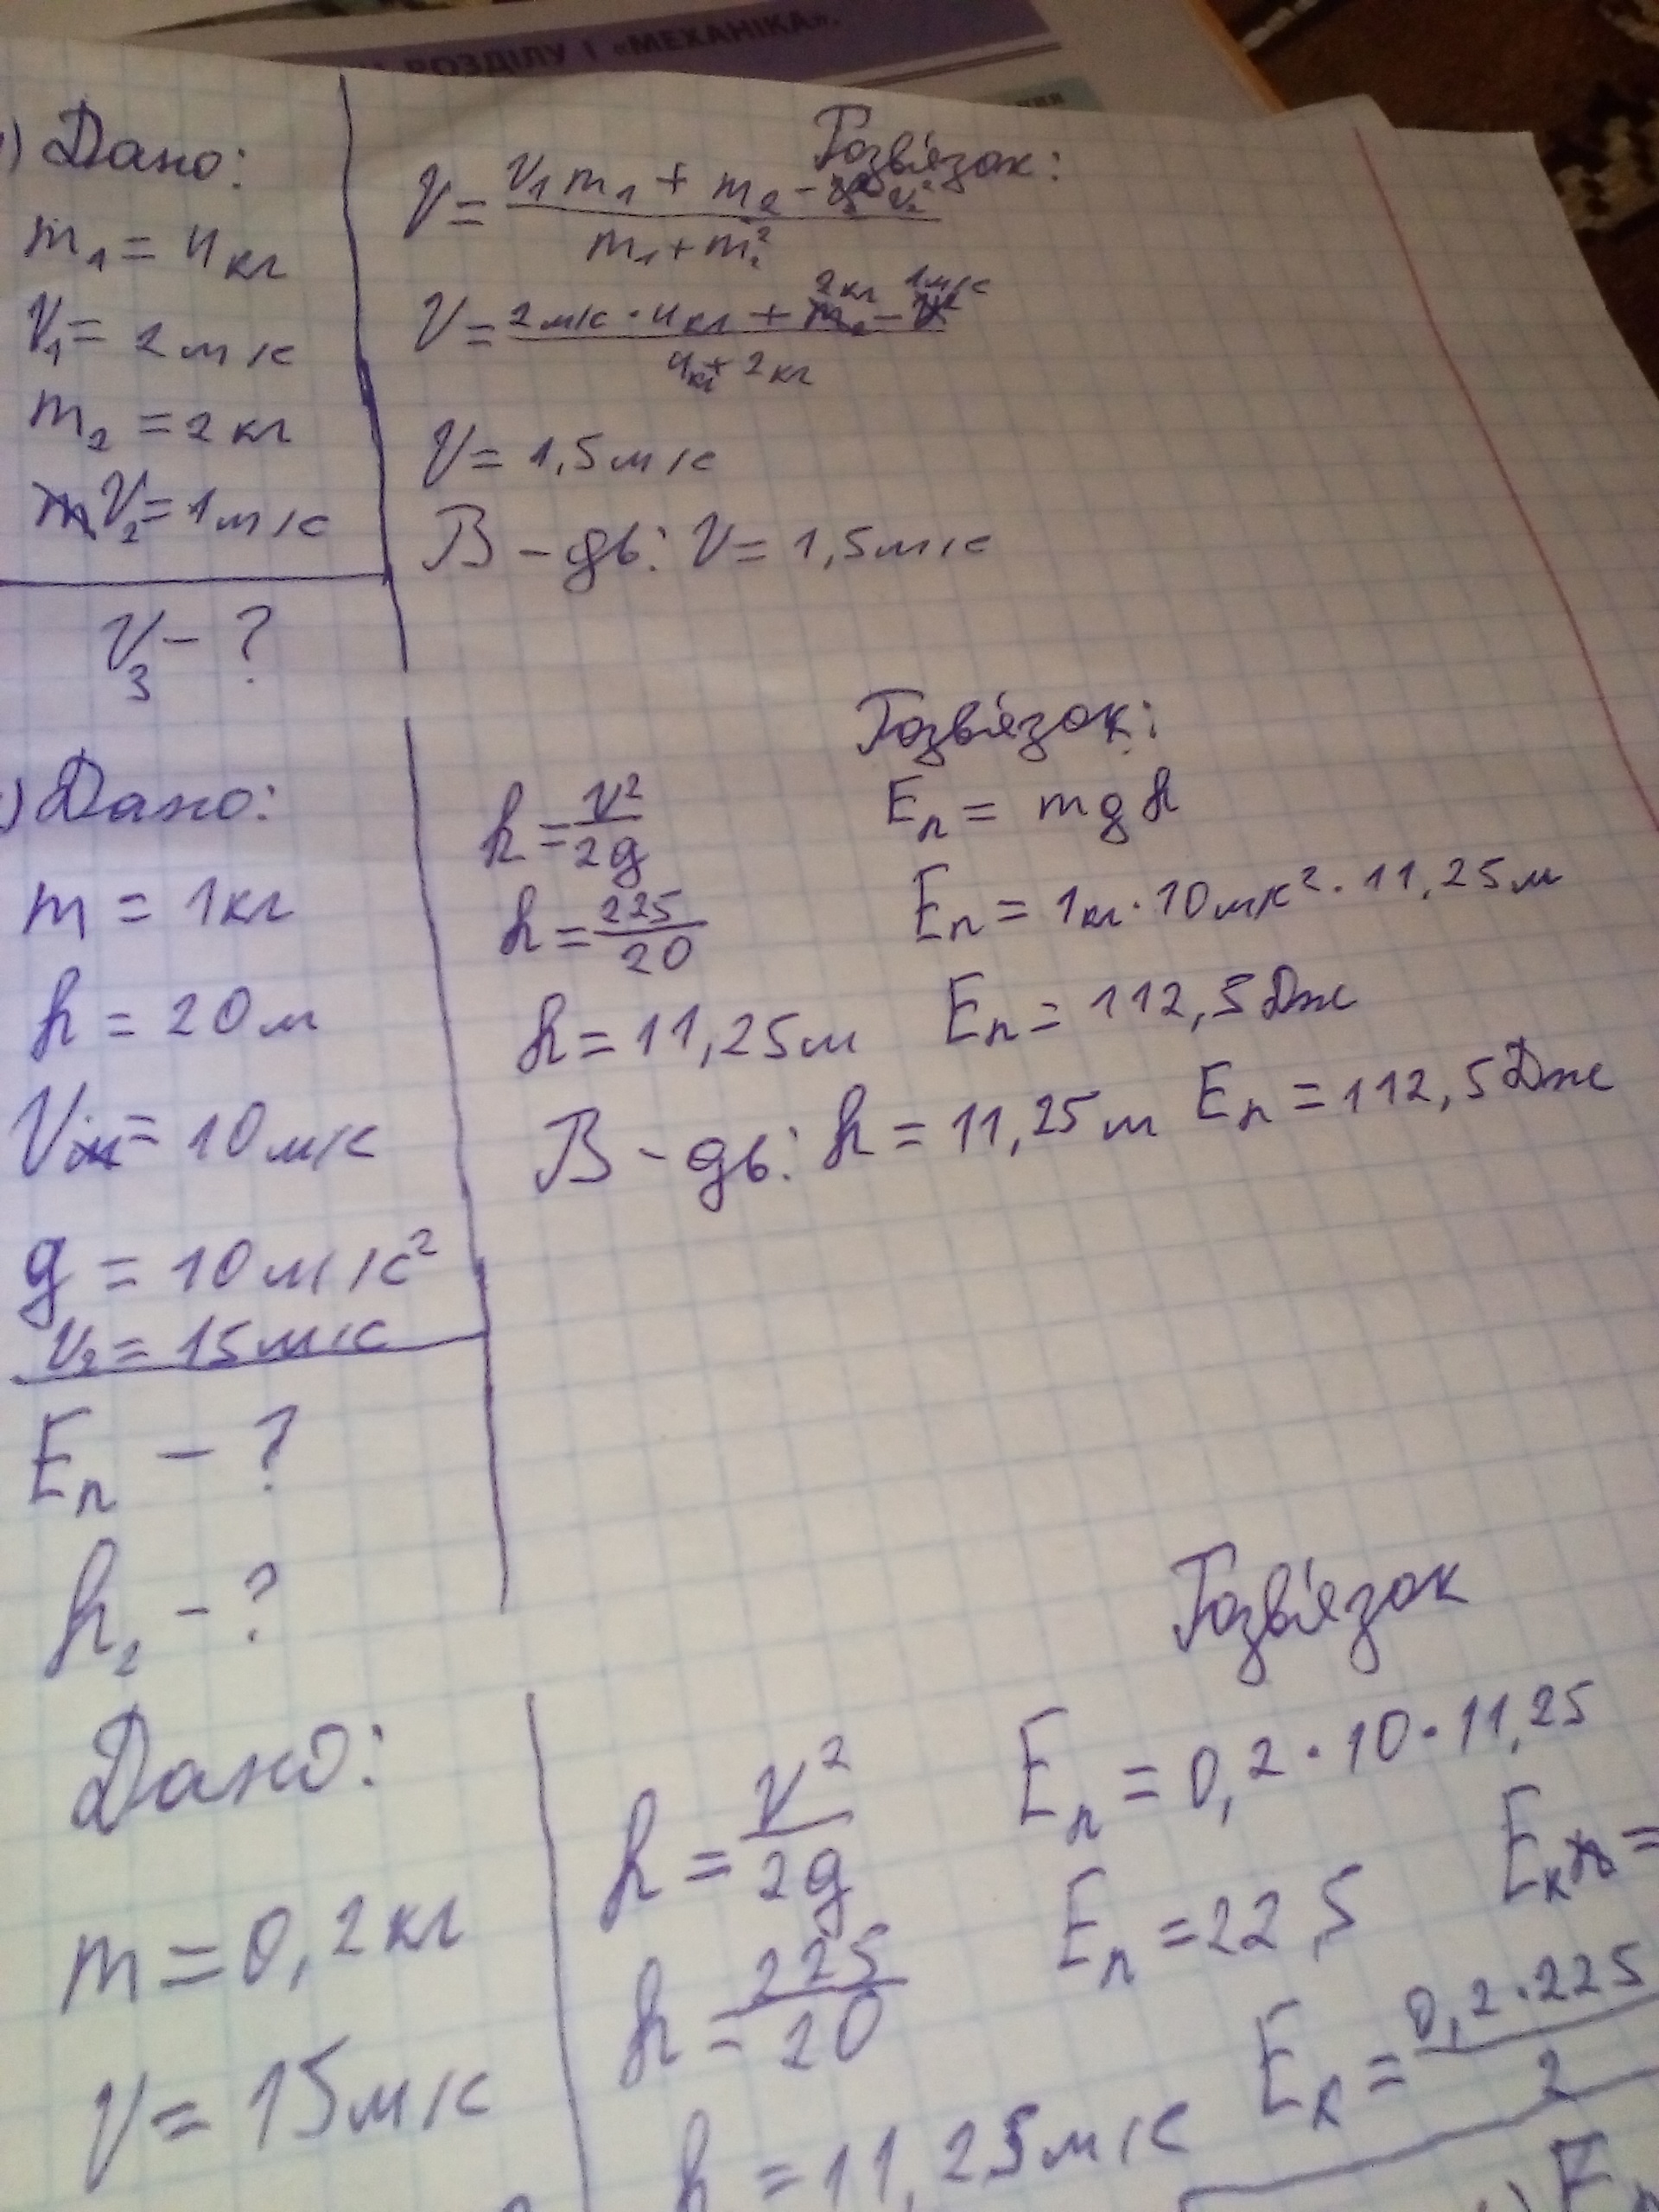 РОЗДІЛУ І «МЕХАНІКА».
Дано:
m₁ = 4 кг
V₁ = 2 м/с
m₂ = 2 кг
V₂ = 1 м/с
V₃ - ?
Розв'язок:
V = (V₁ m₁ + m₂ - V₂²) / (m₁ + m₂²)
V = (2 м/с · 4 кг + 2 кг - 1 м/с) / (4 кг + 2 кг)
V = 1,5 м/с
В - дь: V = 1,5 м/с
Дано:
m = 1 кг
h = 20 м
V = 10 м/с
g = 10 м/с²
V₂ = 15 м/с
Eп - ?
h₂ - ?
Розв'язок:
h = V²/2g
h = 225/20
h = 11,25 м
Eп = mgh
Eп = 1 кг · 10 м/с² · 11,25 м
Eп = 112,5 Дж
В - дь: h = 11,25 м Eп = 112,5 Дж
Дано:
m = 0,2 кг
V = 15 м/с
Розв'язок
h = V²/2g
h = 225/20
h = 11,25 м/с
Eп = 0,2 · 10 · 11,25
Eп = 22,5
Eк =
Eк = 0,2 · 225 / 2